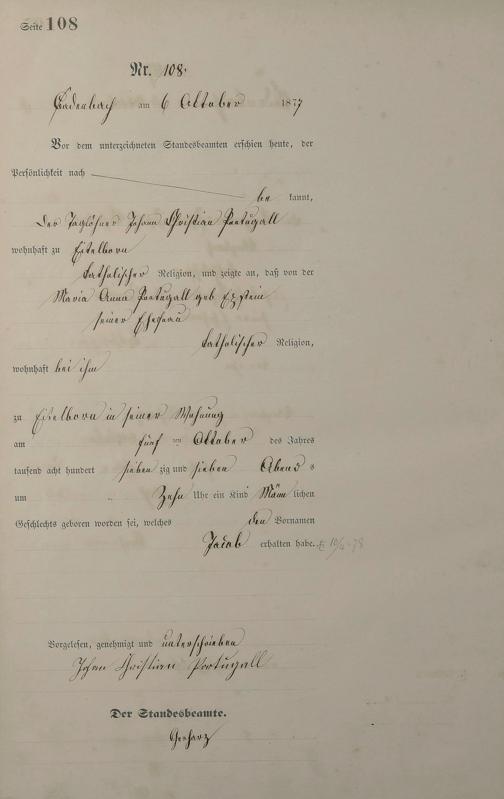 Seite 108
Nr. 108.
Cadenbach am 6 Oktober 1877
Vor dem unterzeichneten Standesbeamten erschien heute, der
Persönlichkeit nach
be kannt,
der Taglöhner Johann Christian Portugall
wohnhaft zu Eitelborn
katholischer Religion, und zeigte an, daß von der
Maria Anna Portugall geb
seiner Ehefrau
katholischer Religion,
wohnhaft bei ihm
zu Eitelborn in seiner Wohnung
am fünf ten Oktober des Jahres
tausend acht hundert sieben zig und sieben Abend s
um Zehn Uhr ein Kind Männ lichen
Geschlechts geboren worden sei, welches den Vornamen
Jacob erhalten habe. 10/4 78
Vorgelesen, genehmigt und unterschrieben
Johan Christian Portugall
Der Standesbeamte.
Gerharz